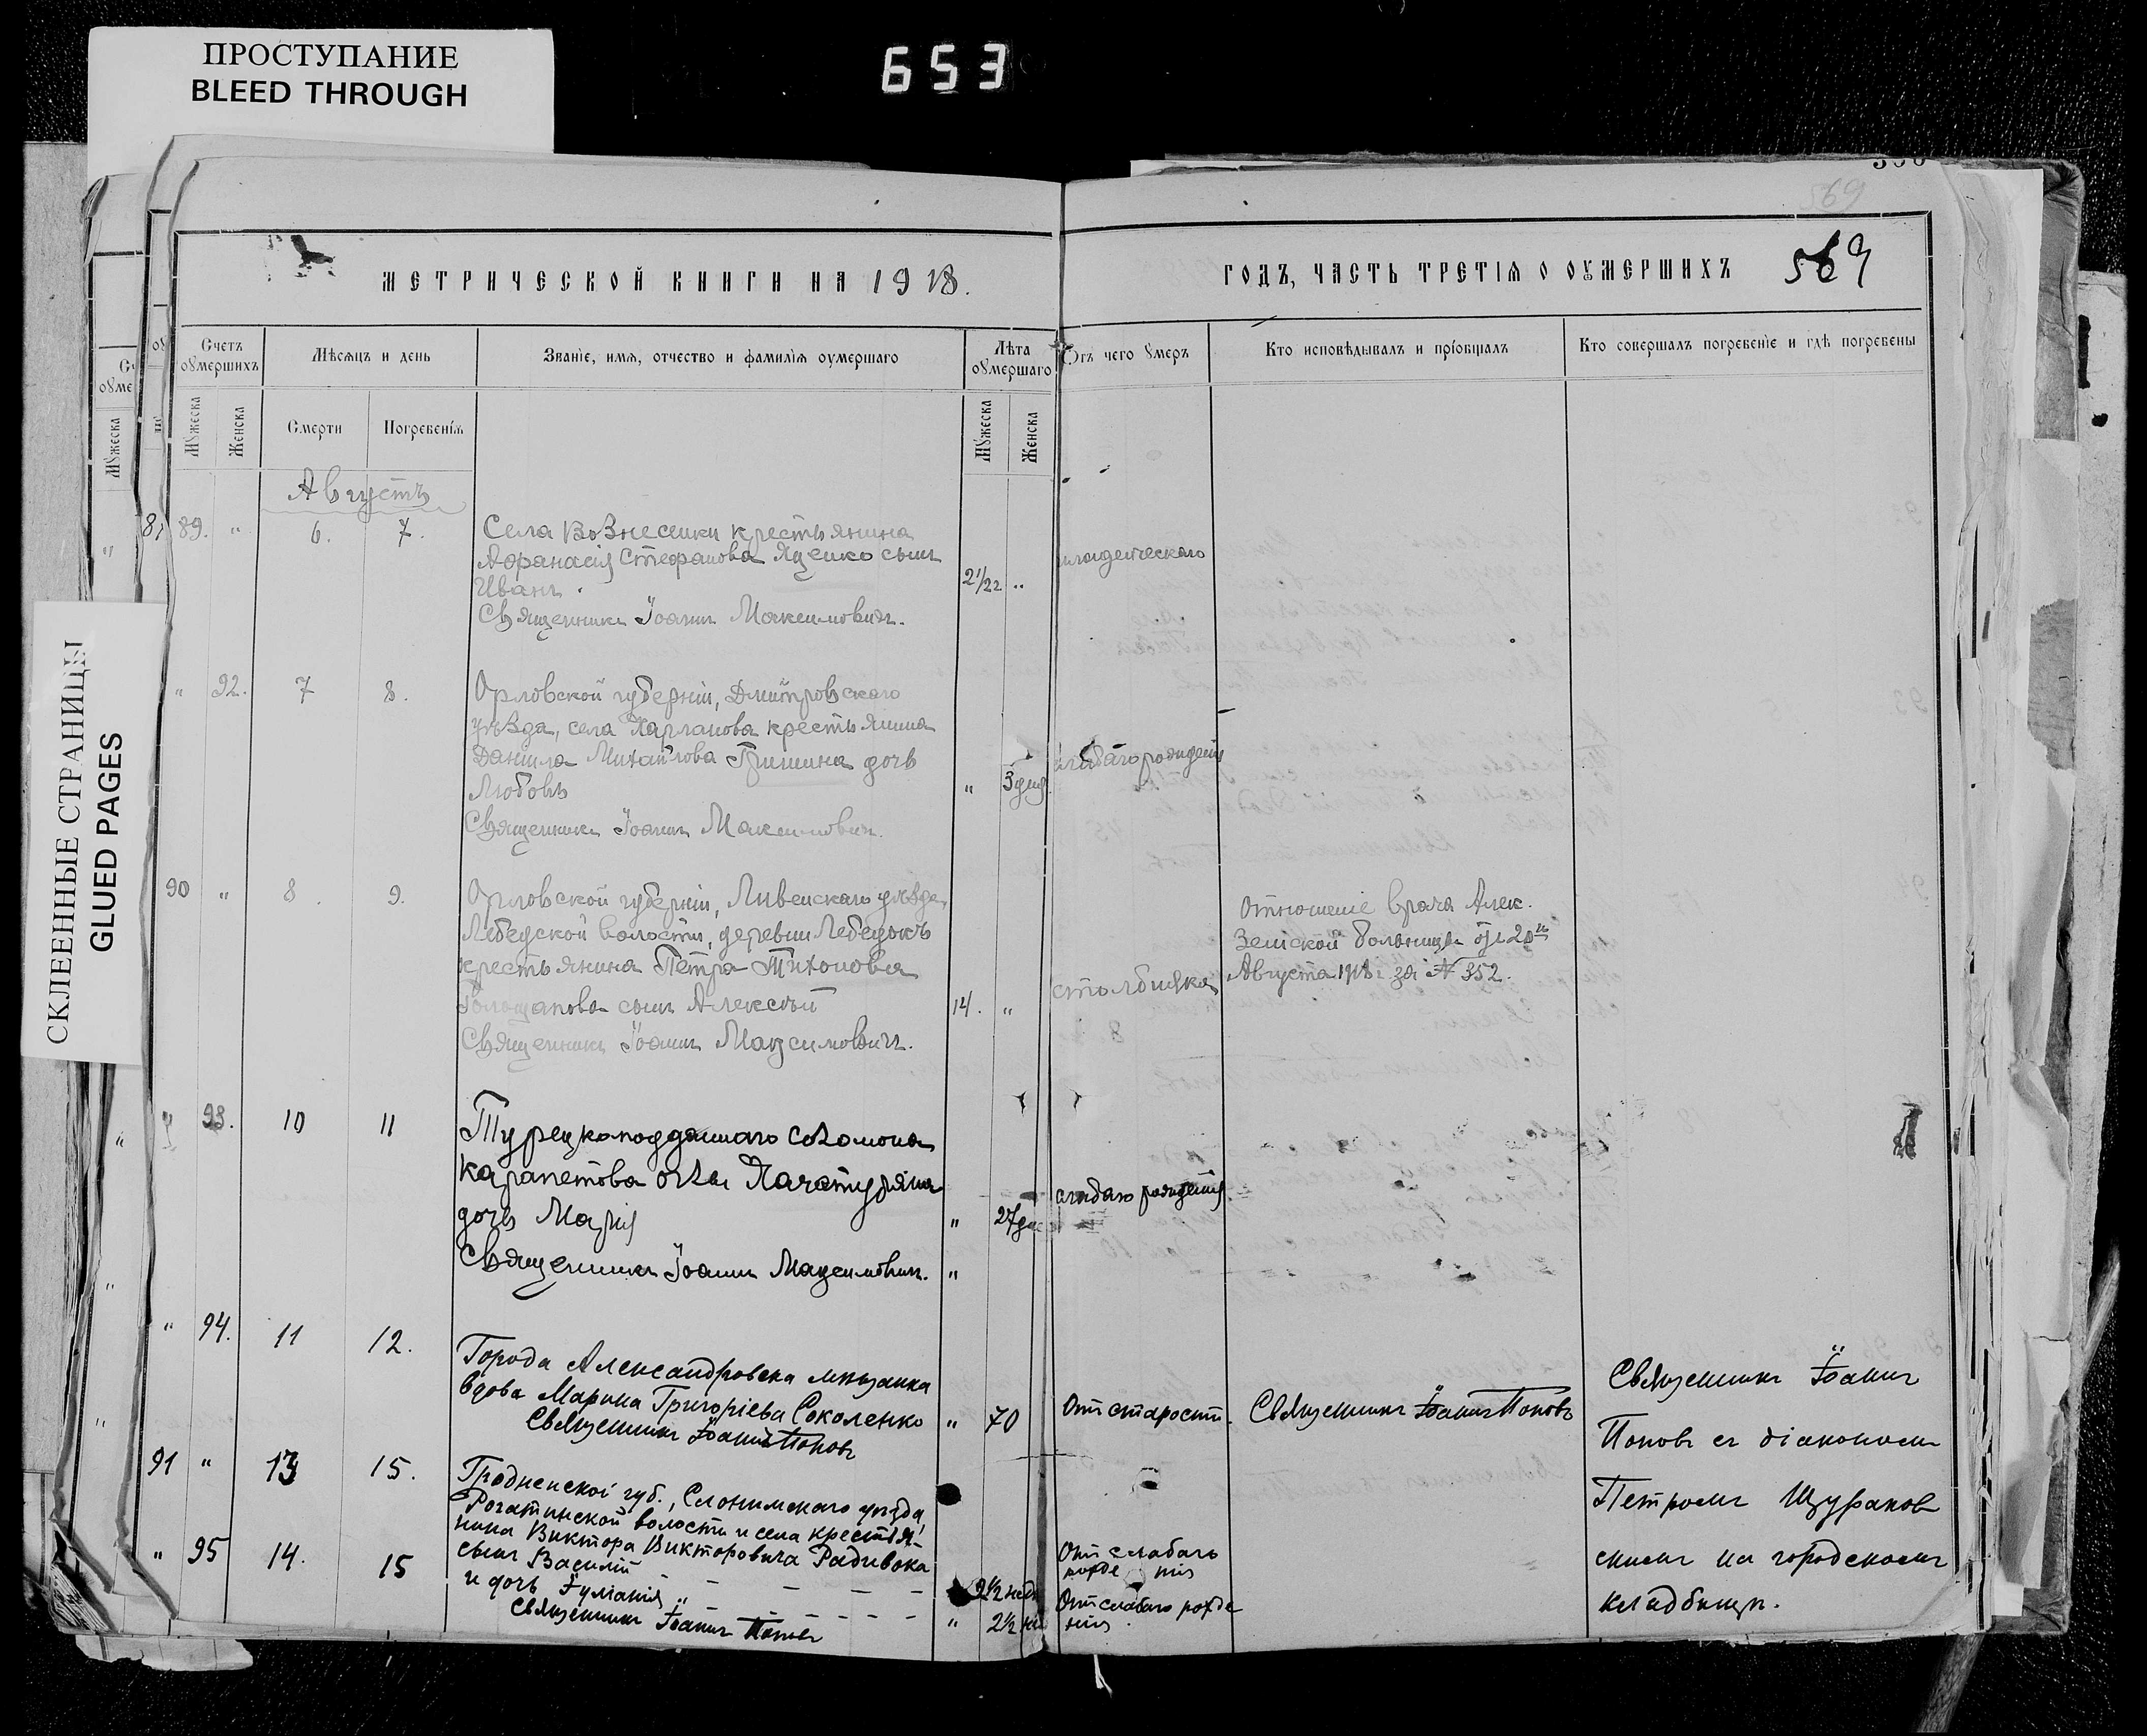 ПРОСТУПАНИЕ
BLEED THROUGH
653
СКЛЕЕННЫЕ СТРАНИЦЫ
GLUED PAGES
569
МЕТРИЧЕСКОЙ КНИГИ НА 1918.
ГОДЪ, ЧАСТЬ ТРЕТІЯ О ОУМЕРШИХЪ
569
Счетъ оумершихъ
Мѣсяцъ и день
Званіе, имя, отчество и фамилія оумершаго
Лѣта оумершаго
Отъ чего умеръ
Кто исповѣдывалъ и пріобщалъ
Кто совершалъ погребеніе и гдѣ погребены
Мужеска
Женска
Смерти
Погребенія
Мужеска
Женска
Августъ
89. " 6. 7.
Села Вознесенки крестьянина
Афанасія Стефанова Яценко сынъ
Иванъ.
2 1/2 г "
младенческаго
Священникъ Іоаннъ Максимовичъ.
" 92. 7 8.
Орловской губерніи, Дмитровскаго
уѣзда, села крестьянина
Данила Михайлова Гришина дочь
Любовь
" 3 дня
слабаго рожденія
Священникъ Іоаннъ Максимовичъ.
90 " 8. 9.
Орловской губерніи, Ливенскаго уѣзда,
Лебедской волости, деревни Лебедокъ
крестьянина Петра Тихонова
сынъ Алексѣй
14. "
столбняка
Отношеніе врача Алек.
Земской больницы отъ 20го
Августа 1918 г за № 352.
Священникъ Іоаннъ Максимовичъ.
" 93. 10 11
Турецкоподданнаго Соломона
Карапетова оглы Хачатуряна
дочь Марія
" 27 дн
слабаго рожденія
Священникъ Іоаннъ Максимовичъ. "
" 94. 11 12.
Города Александровска мѣщанка
вдова Марина Григоріева Соколенко
" 70
Отъ старости.
Священникъ Іоаннъ Поповъ
Священникъ Іоаннъ Поповъ
Священникъ Іоаннъ
Поповъ съ діакономъ
Петромъ Щуранов
скимъ на городскомъ
кладбищѣ.
91 " 13 15.
Гродненской губ., Слонимскаго уѣзда,
Рогатинской волости и села крестья-
нина Виктора Викторовича Радивока
сынъ Василій
2 1/2 нед
Отъ слабаго
рожде нія
" 95 14. 15
и дочь
" 2 1/2 не
Отъ слабаго рожде
нія
Священникъ Іоаннъ Поповъ